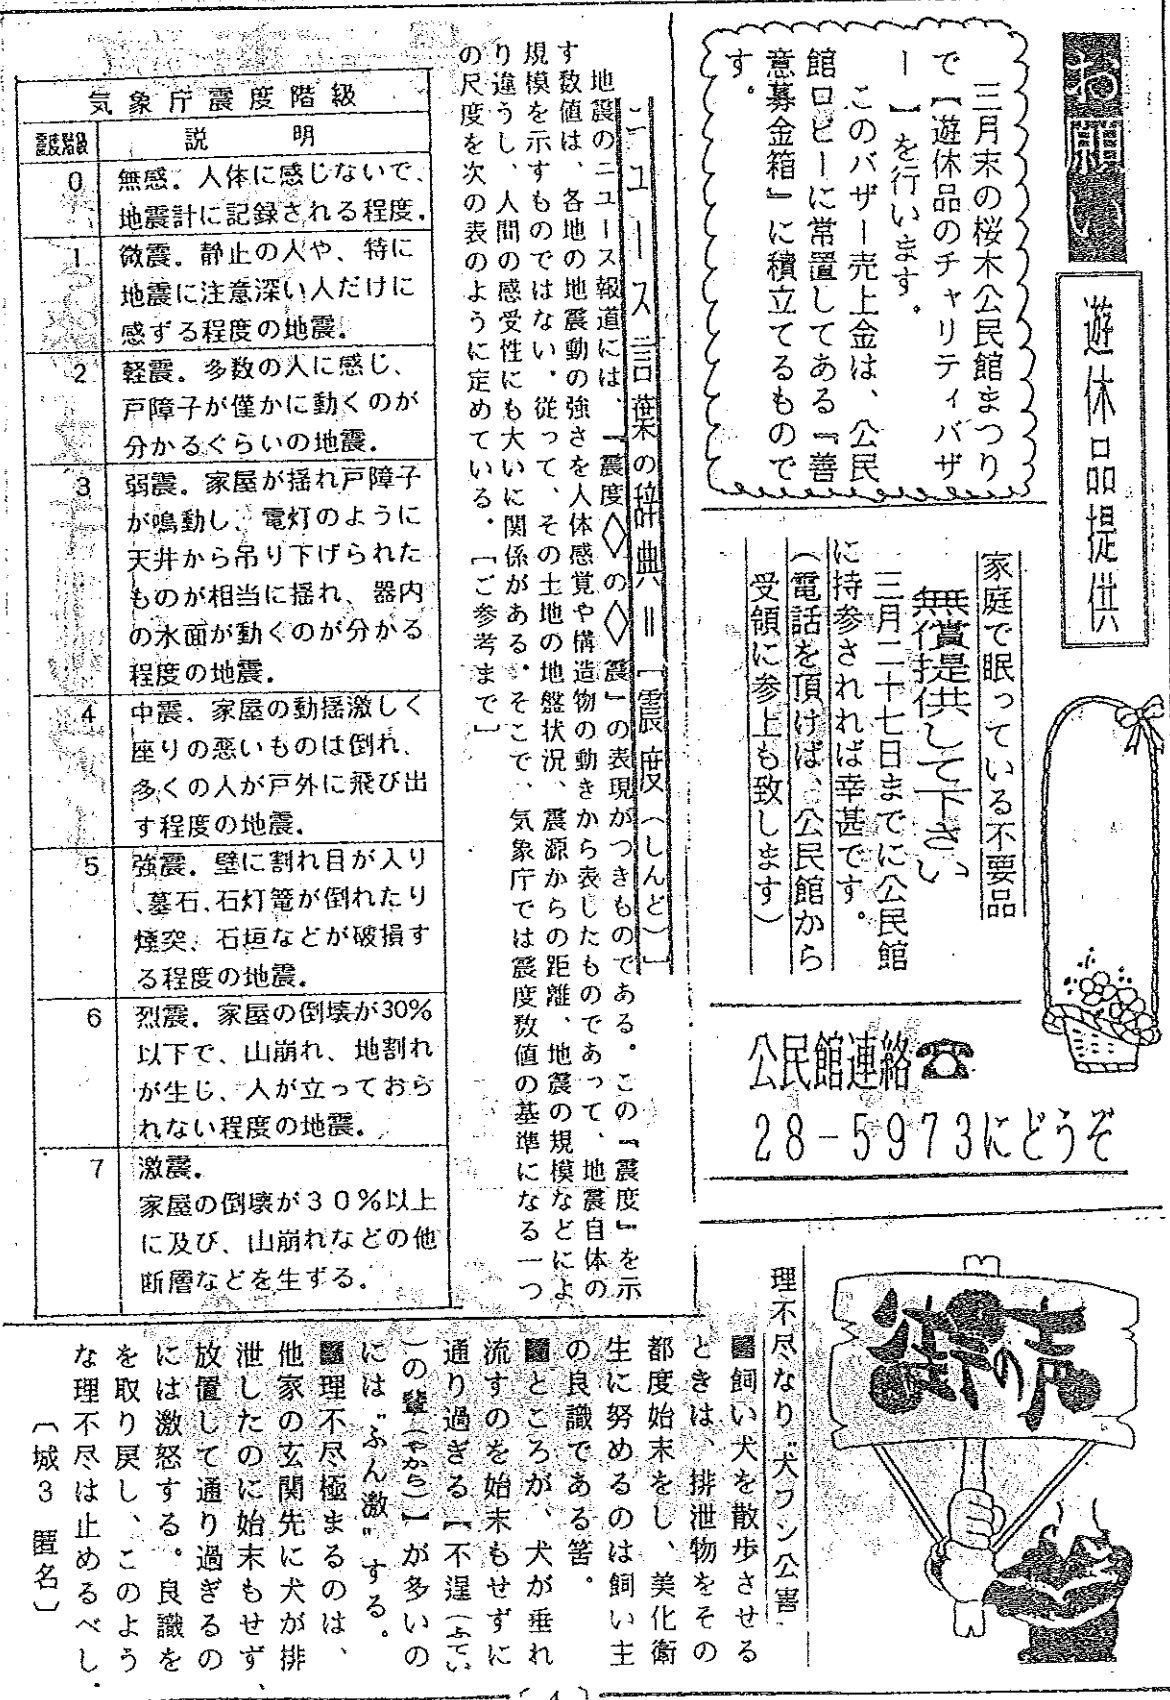 お願い
遊休品提供
三月末の桜木公民館まつり
で【遊休品のチャリティバザ
ー】を行います。
このバザー売上金は、公民
館ロビーに常置してある『善
意募金箱』に積立てるもので
す。
家庭で眠っている不要品
無償提供して下さい
三月二十七日までに公民館
に持参されれば幸甚です。
(電話を頂けば、公民館から
受領に参上も致します)
公民館連絡☎
28-5973にどうぞ
ニュース言葉の辞典=[震度(しんど)]
地震のニュース報道には、『震度◇の◇震』の表現がつきものである。この『震度』を示
す数値は、各地の地震動の強さを人体感覚や構造物の動きから表したものであって、地震自体の
規模を示すものではない。従って、その土地の地盤状況、震源からの距離、地震の規模などによ
り違うし、人間の感受性にも大いに関係がある。そこで、気象庁では震度数値の基準になる一つ
の尺度を次の表のように定めている。[ご参考まで]
気象庁震度階級
震度階級 説明
0 無感.人体に感じないで、
地震計に記録される程度.
1 微震.静止の人や、特に
地震に注意深い人だけに
感ずる程度の地震.
2 軽震.多数の人に感じ、
戸障子が僅かに動くのが
分かるぐらいの地震.
3 弱震.家屋が揺れ戸障子
が鳴動し、電灯のように
天井から吊り下げられた
ものが相当に揺れ、器内
の水面が動くのが分かる
程度の地震.
4 中震.家屋の動揺激しく
座りの悪いものは倒れ、
多くの人が戸外に飛び出
す程度の地震.
5 強震.壁に割れ目が入り
、墓石、石灯篭が倒れたり
煙突、石垣などが破損す
る程度の地震.
6 烈震.家屋の倒壊が30%
以下で、山崩れ、地割れ
が生じ、人が立っておら
れない程度の地震.
7 激震.
家屋の倒壊が30%以上
に及び、山崩れなどの他
断層などを生ずる.
の声
理不尽なり"犬フン公害"
■飼い犬を散歩させる
ときは、排泄物をその
都度始末をし、美化衛
生に努めるのは飼い主
の良識である筈。
■ところが、犬が垂れ
流すのを始末もせずに
通り過ぎる【不逞(ふてい
)の輩(やから)】が多いの
には"ふん激"する。
■理不尽極まるのは、
他家の玄関先に犬が排
泄したのに始末もせず、
放置して通り過ぎるの
には激怒する。良識を
を取り戻し、このよう
な理不尽は止めるべし.
〔城3 匿名〕
〔4〕